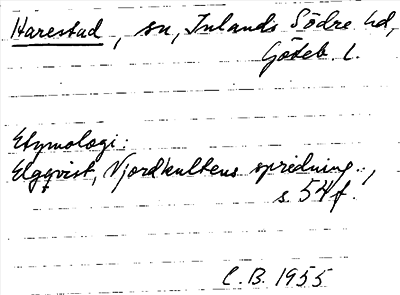 Harestad, sn, Inlands Södre hd,
Göteb. l.
Etymologi:
Elgqvist, Njordkultens spridning..,
s. 54 f.
C.B. 1955